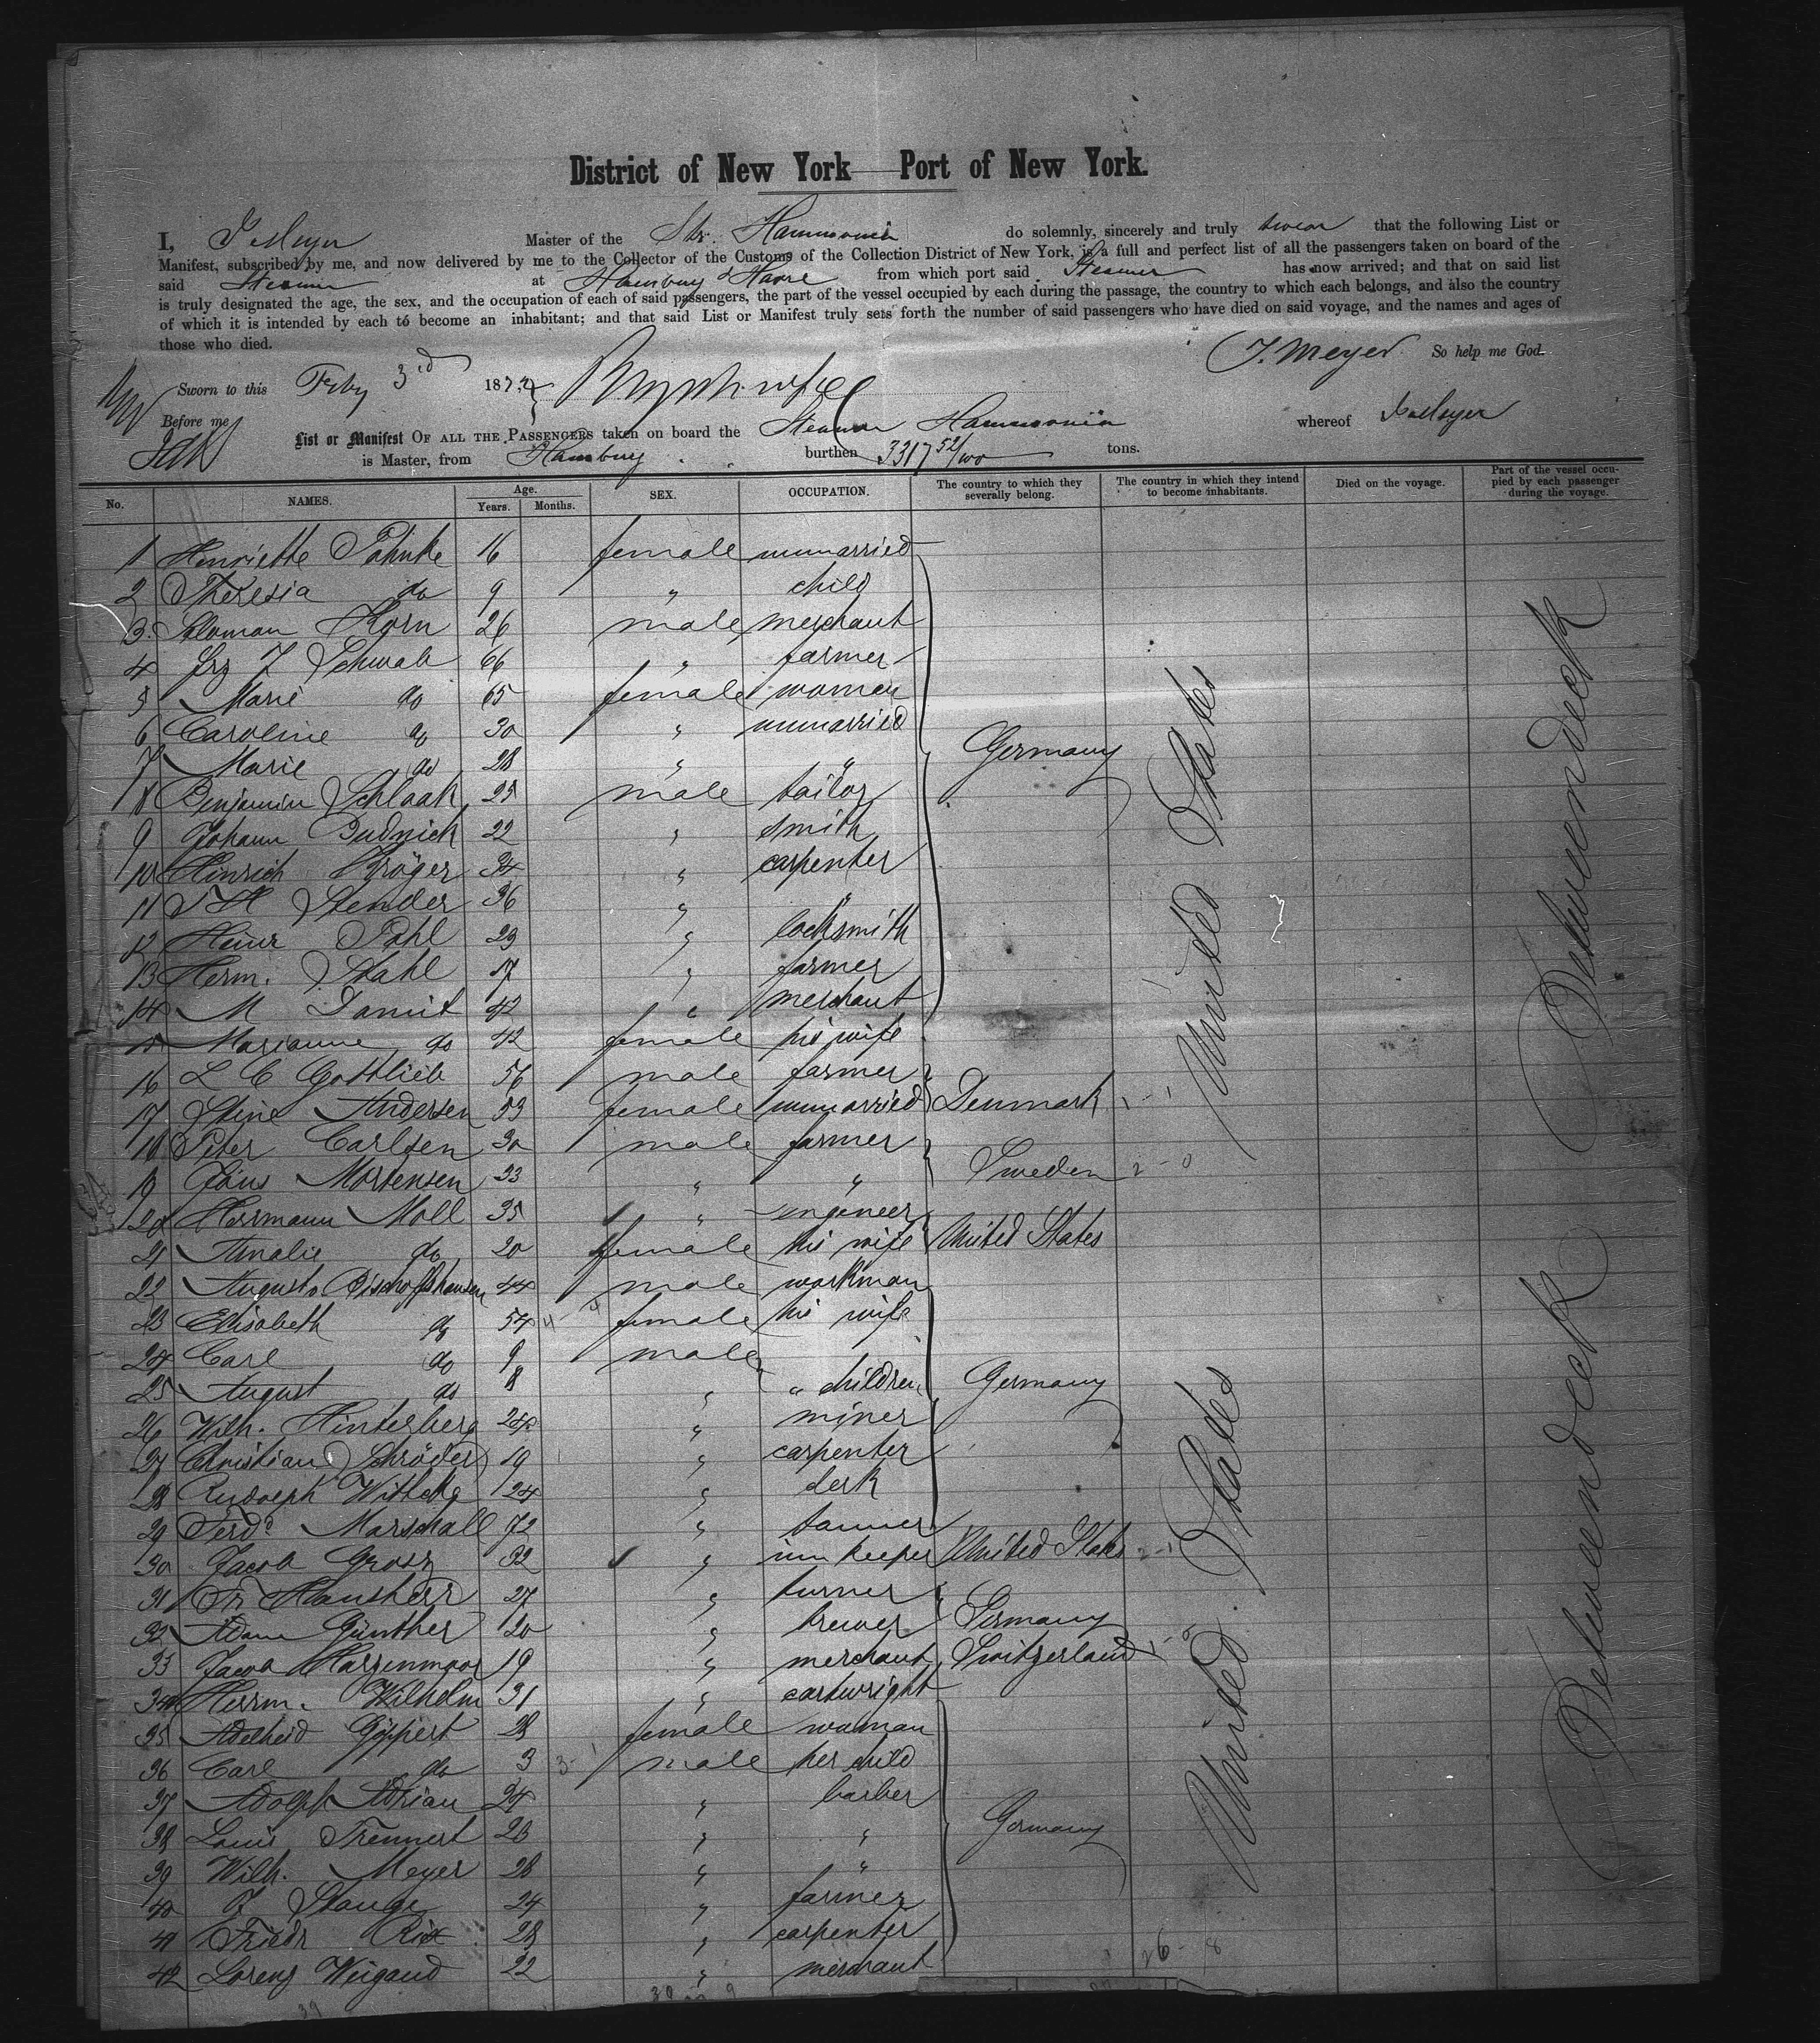 District of New York Port of New York.
I, J Meyer Master of the Str. Hammonia do solemnly, sincerely and truly swear that the following List or
Manifest, subscribed by me, and now delivered by me to the Collector of the Customs of the Collection District of New York, is a full and perfect list of all the passengers taken on board of the
said Steamer at Hamburg & Havre from which port said Steamer has now arrived; and that on said list
is truly designated the age, the sex, and the occupation of each of said passengers, the part of the vessel occupied by each during the passage, the country to which each belongs, and also the country
of which it is intended by each to become an inhabitant; and that said List or Manifest truly sets forth the number of said passengers who have died on said voyage, and the names and ages of
those who died.
J. Meyer So help me God.
Sworn to this Feby 3rd 187
Before me
List or Manifest OF ALL THE PASSENGERS taken on board the Steamer Hammonia whereof J Meyer
is Master, from Hamburg burthen 3317 52/100 tons.
No. NAMES. Age. Years. Months. SEX. OCCUPATION. The country to which they severally belong. The country in which they intend to become inhabitants. Died on the voyage. Part of the vessel occupied by each passenger during the voyage.
1 Henriette 16 female unmarried
2 Theresia do 9 " child
3 Salomon Korn 26 male merchant
4 J Schwab 66 " farmer
5 Marie do 65 female woman
6 Caroline do 30 " unmarried
7 Marie do 28 " " Germany
8 Benjamin Schlaak 25 male tailor
9 Johann Budnick 22 " smith
10 Hinrich Kröger 34 " carpenter
11 J H Stender 36 " "
12 Heinr Pohl 23 " locksmith
13 Herm. Stahl 17 " farmer
14 M 42 " merchant
15 Marianne do 42 female his wife
16 L C Gottlieb 56 male farmer
17 Stine Andersen 53 female unmarried Denmark
18 Peter Carlsen 30 male farmer
19 Jöns Mortensen 23 " " Sweden
20 Hermann Moll 35 " engineer
21 Amalie do 20 female his wife United States
22 August Bischoffshausen 44 male workman
23 Elisabeth do 54 female his wife
24 Carl do 9 male
25 August do 8 " " children Germany
26 Wilh. Hinterberg 24 " miner
27 Christian Schröder 19 " carpenter
28 Rudolph 24 " clerk
29 Ferdd Marschall 72 " tanner
30 Jacob Grosz 32 " inn keeper United States
31 Fr Hausherr 27 " turner
32 Adam Günther 20 " brewer Germany
33 Jacob Harzenmoos 19 " merchant Switzerland
34 Herrm. Wilhelm 31 " cartwright
35 Adelheid Göppert 28 female woman
36 Carl do 3 male her child
37 Adolph Adrian 24 " barber
38 Louis Trennert 23 " " Germany
39 Wilh. Meyer 28 " "
40 J Stange 24 " farmer
41 Friedr Rix 28 " carpenter
42 Lorenz Weigand 22 " merchant
United States
United States
Between deck
Between deck